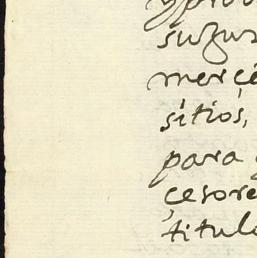 suzus
merçe
sitios,
para
çesore
titulo